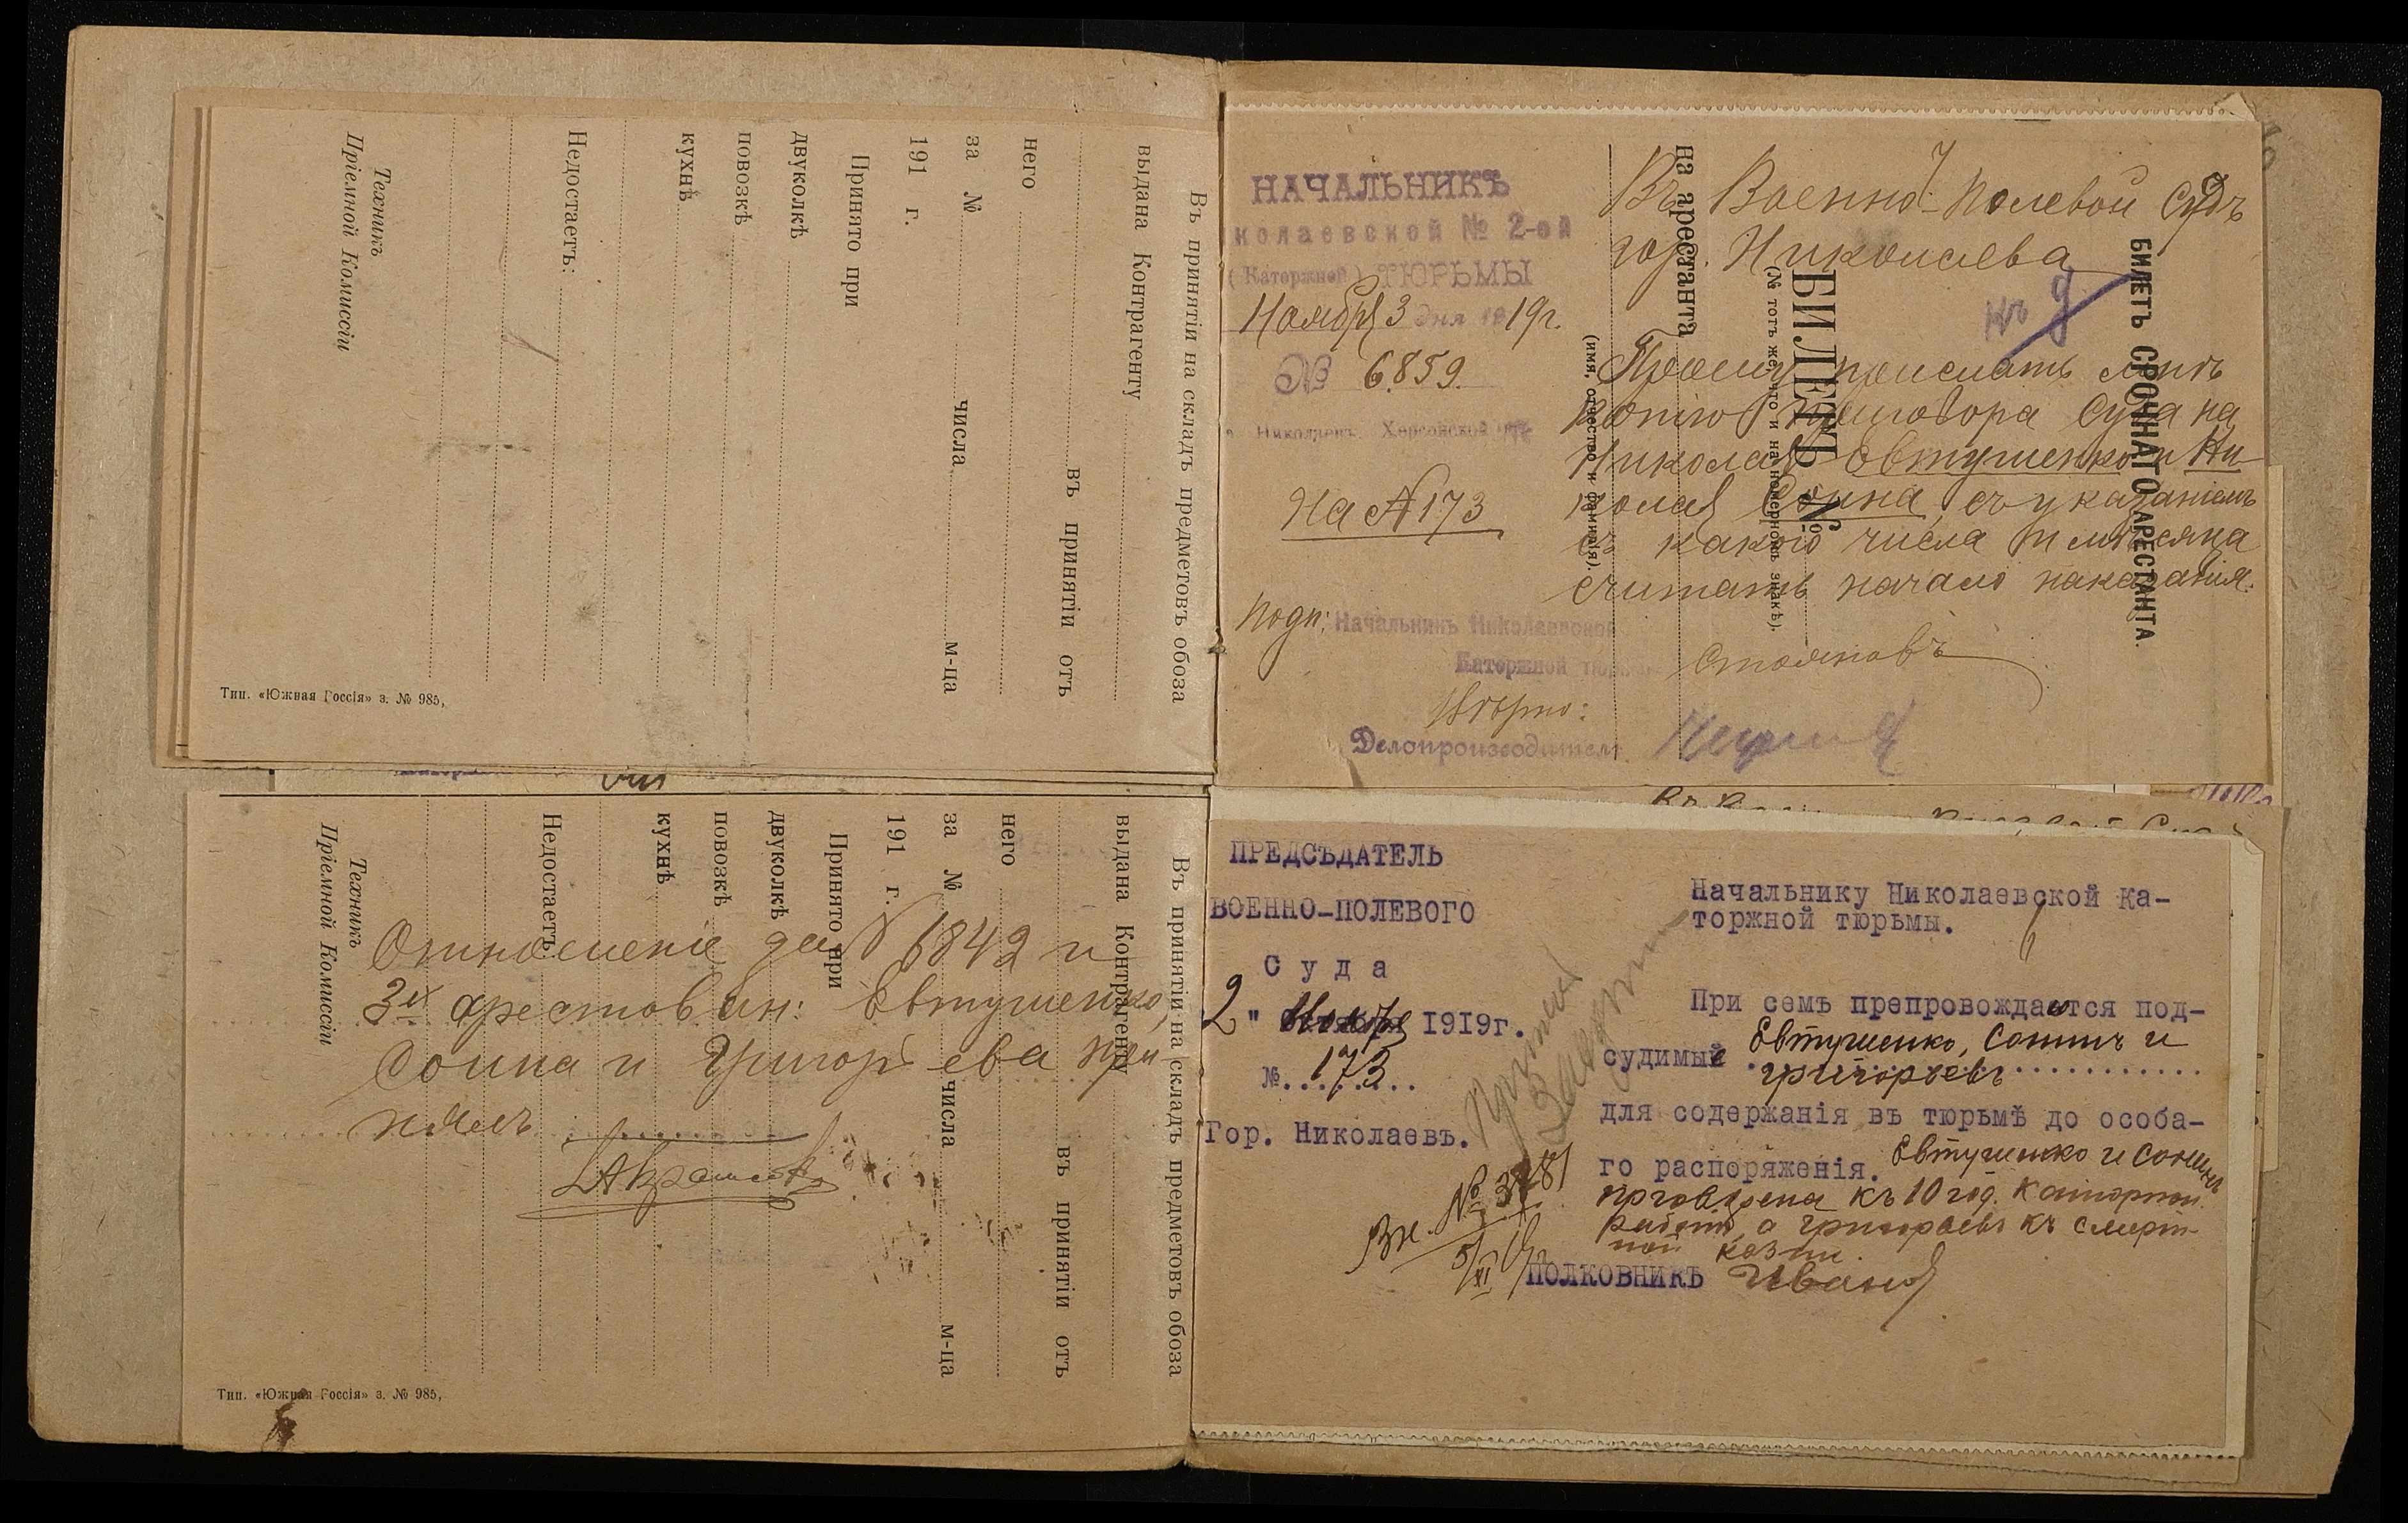 Въ принятіи на складъ предметовъ обоза
выдана Контрагенту
въ принятіи отъ
него
за № числа м-ца
191 г.
Принято при
двуколкѣ
повозкѣ
кухнѣ
Недостаетъ:
Техникъ
Пріемной Комиссіи
Тип. «Южная Россія» з. № 985,
НАЧАЛЬНИКЪ
колаевской № 2-ой
(Каторжной) ТЮРЬМЫ
Ноября 3 дня 1919г.
№ 6859.
г. Николаевъ, Херсонской губ.
На № 173
Въ Военно-Полевой Судъ
гор. Николаева
Къ д
Прошу прислать мнѣ
копію приговора Суда на
Николая Евтушенко и Ни-
колая Сонина, съ указаніемъ
съ какого числа и мѣсяца
считать начало наказанія.
Подп: Начальникъ Николаевской
Каторжной тюрьмы Стояновъ
Вѣрно:
Делопроизводитель
БИЛЕТЪ СРОЧНАГО АРЕСТАНТА.
БИЛЕТЪ №
(№ тотъ же, что и на номерномъ знакѣ).
на арестанта
(имя, отчество и фамилія).
Въ принятіи на складъ предметовъ обоза
выдана Контрагенту
въ принятіи отъ
него
за № числа м-ца
191 г.
Принято при
двуколкѣ
повозкѣ
кухнѣ
Недостаетъ:
Техникъ
Пріемной Комиссіи
Тип. «Южная Россія» з. № 985,
Отношение за № 6842 и
3х арестован: Евтушенко,
Сонина и Григорьева при-
нялъ
ПРЕДСѢДАТЕЛЬ
ВОЕННО-ПОЛЕВОГО
Суда
2 " Ноября 1919г.
№ 173
Гор. Николаевъ.
Начальнику Николаевской Ка-
торжной тюрьмы.
При семъ препровождаются под-
судимые Евтушенко, Сонинъ и
Григорьевъ
для содержанія въ тюрьмѣ до особа-
го распоряженія. Евтушенко и Сонинъ
приговорены къ 10 год. каторжной
работѣ, а Григорьевъ къ смерт-
ной казни.
ПОЛКОВНИКЪ Иванов
Вх. №
5/XI 19